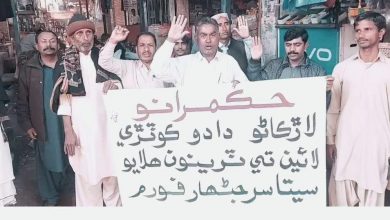 حڪمرانو
لاڙڪاڻو دادو ڪوٽڙي
لائين تي ٽرينون هلايو
سيتا سرجٹهار فورم
vivo